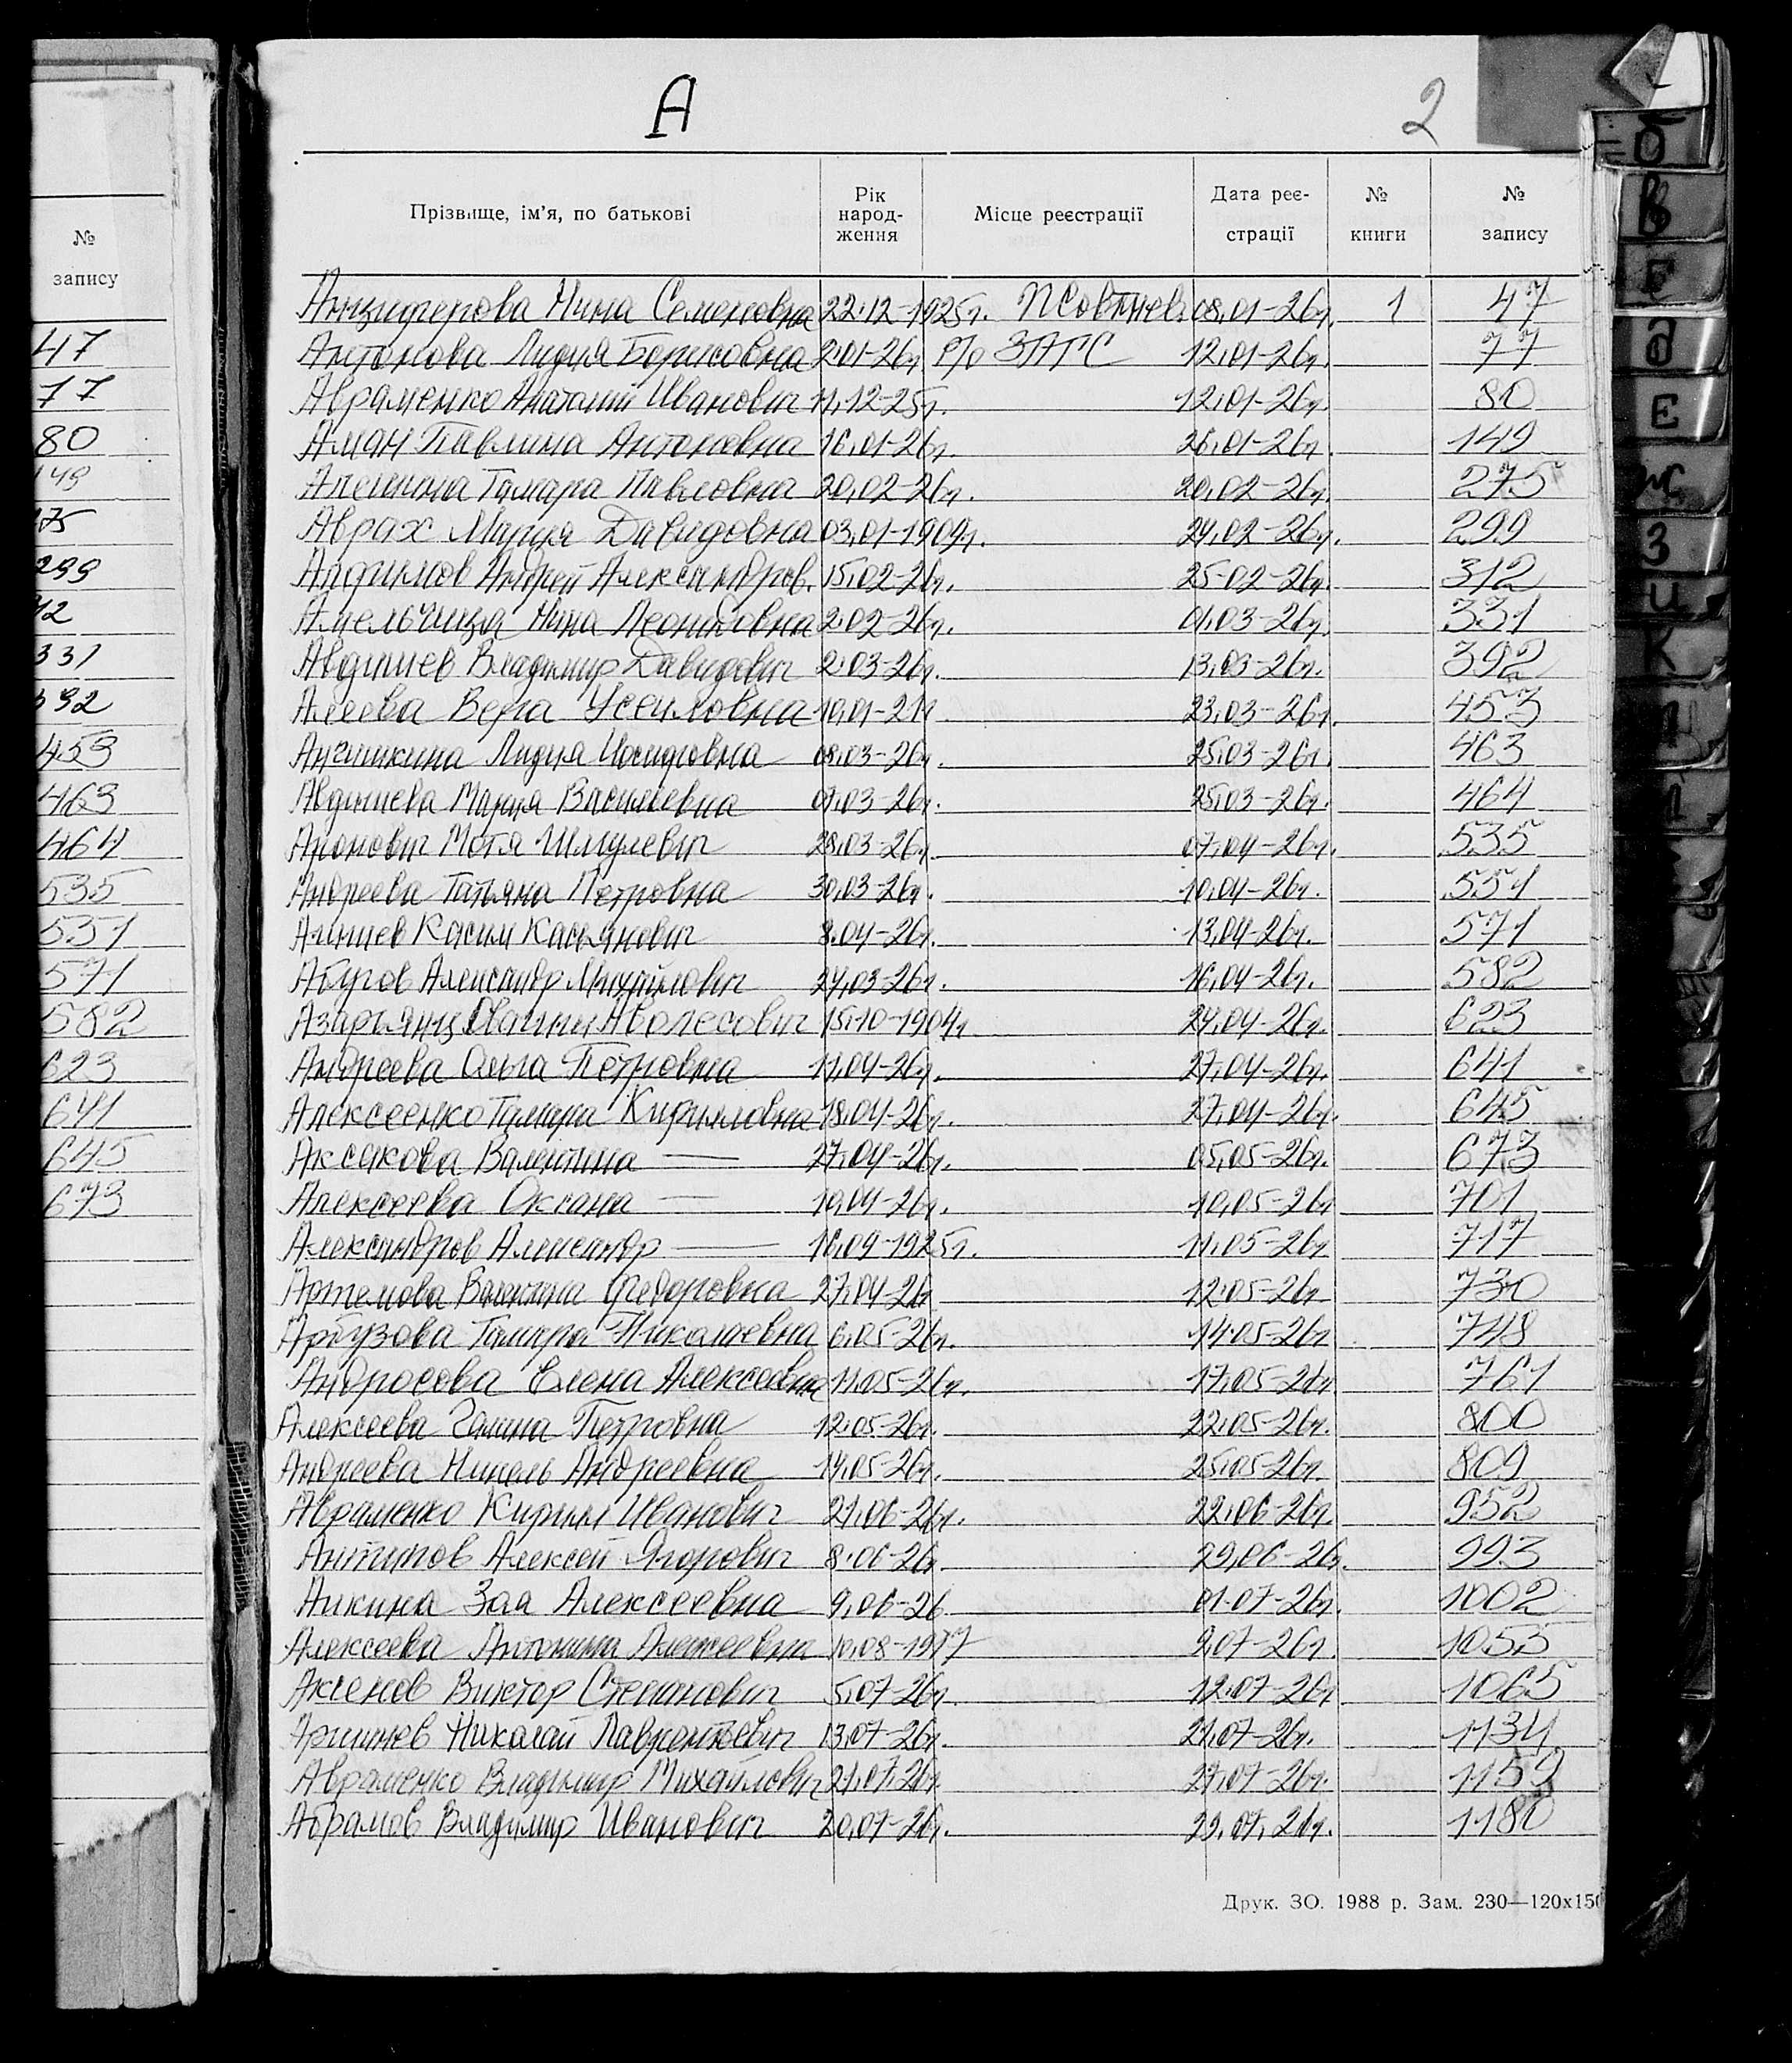 №
запису
47
77
80
149
299
331
392
453
463
464
535
551
571
582
623
641
645
673
А
2
Прізвище, ім'я, по батькові
Рік народ-ження
Місце реєстрації
Дата реє-страції
№ книги
№ запису
Анциферова Нина Семеновна 22.12-1925г. 08.01-26г. 1 47
Антонова Лидия Борисовна 2.01-26г р/о ЗАГС 12.01-26г. 77
Авраменко Анатолий Иванович 11.12-25г. 12.01-26г. 80
Аман Павлина Антоновна 16.01-26г. 26.01-26г. 149
Тамара Павловна 20.02-26г. 20.02-26г. 275
Аврах Мария Давидовна 03.01-1909г. 24.02-26г. 299
Андрей Александров. 15.02-26г. 25-02-26г. 312
Нина Леонидовна 2.02-26г. 01.03-26г. 331
Владимир Давидович 2.03-26г. 13.03-26г. 392
Вера 23.03-26г. 453
Лидия 08.03-26г. 25.03-26г. 463
Мария Васильевна 25.03-26г. 464
Аронович Мотя Шмулевич 28.03-26г. 07.04-26г. 535
Андреева Татьяна Петровна 30.03-26г. 10.04-26г. 551
Касим Касьянович 8.04-26г. 13.04-26г. 571
Александр Михайлович 24.03-26г. 16.04-26г. 582
Азарьянц 15.10-1904г 24.04-26г. 623
Андреева Ольга Петровна 11.04-26г. 27.04-26г. 641
Алексеенко Тамара Кирилловна 18.04-26г. 27.04-26г. 645
Аксакова Валентина — 27.04-26г. 05.05-26г. 673
Алексеева Оксана — 10.04-26г. 10.05-26г 701
Александров Александр — 16.09-1925г. 11.05-26г 717
Артемова Валентина Федоровна 27.04-26г 12.05-26г 730
Арбузова Тамара Николаевна 6.05-26г. 14.05-26г 748
Андросова Елена Алексеевна 11.05-26г. 17.05-26г 761
Алексеева Галина Петровна 12.05-26г. 22.05-26г. 800
Андреева Нинель Андреевна 14.05-26г. 25.05-26г. 809
Авраменко Кирилл Иванович 21.06-26г. 22.06-26г. 952
Антипов Алексей Ягорович 8.06-26г 29.06-26г. 993
Аникина Зоя Алексеевна 9.06-26 01.07-26г. 1002
Алексеева Антонина Алексеевна 10.08-1917 9.07-26г. 1055
Аксенов Виктор Степанович 5.07-26г. 12.07-26г 1065
Николай Лаврентьевич 13.07-26г. 21.07-26г. 1134
Авраменко Владимир Михайлович 21.07.26г. 27.07-26г. 1159
Абрамов Владимир Иванович 20.07-26г. 29.07.26г. 1180
Друк. ЗО. 1988 р. Зам. 230—120х150
Б
В
Г
Д
Е
Ж
З
И
К